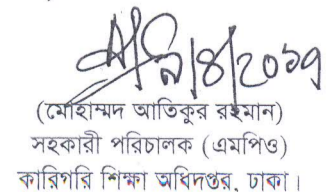 (মোহাম্মদ আতিকুর রহমান)
সহকারী পরিচালক (এমপিও)
কারিগরি শিক্ষা অধিদপ্তর, ঢাকা।